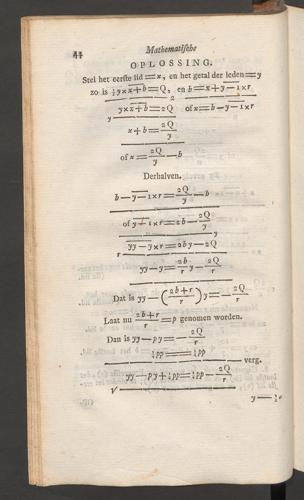 44 Mathematische
OPLOSSING.
Stel het eerste lid = x, en het getal der leden = y
zo is ½ y × x + b = Q, en b = x + y − 1 × r
2
y × x + b = 2Q of x = b − y − 1 × r
y
x + b = 2Q/y
of x = 2Q/y − b
Derhalven.
b − y − 1 × r = 2Q/y − b
of y − 1 × r = 2b − 2Q/y
y
yy − y × r = 2by − 2Q
r
yy − y = 2b/r y − 2Q/r
Dat is yy − (2b + r/r) y = − 2Q/r
Laat nu 2b + r/r = p genomen worden.
Dan is yy − py = − 2Q/r
¼pp = ¼pp
verg.
yy − py + ¼pp = ¼pp − 2Q/r
√
y − ½